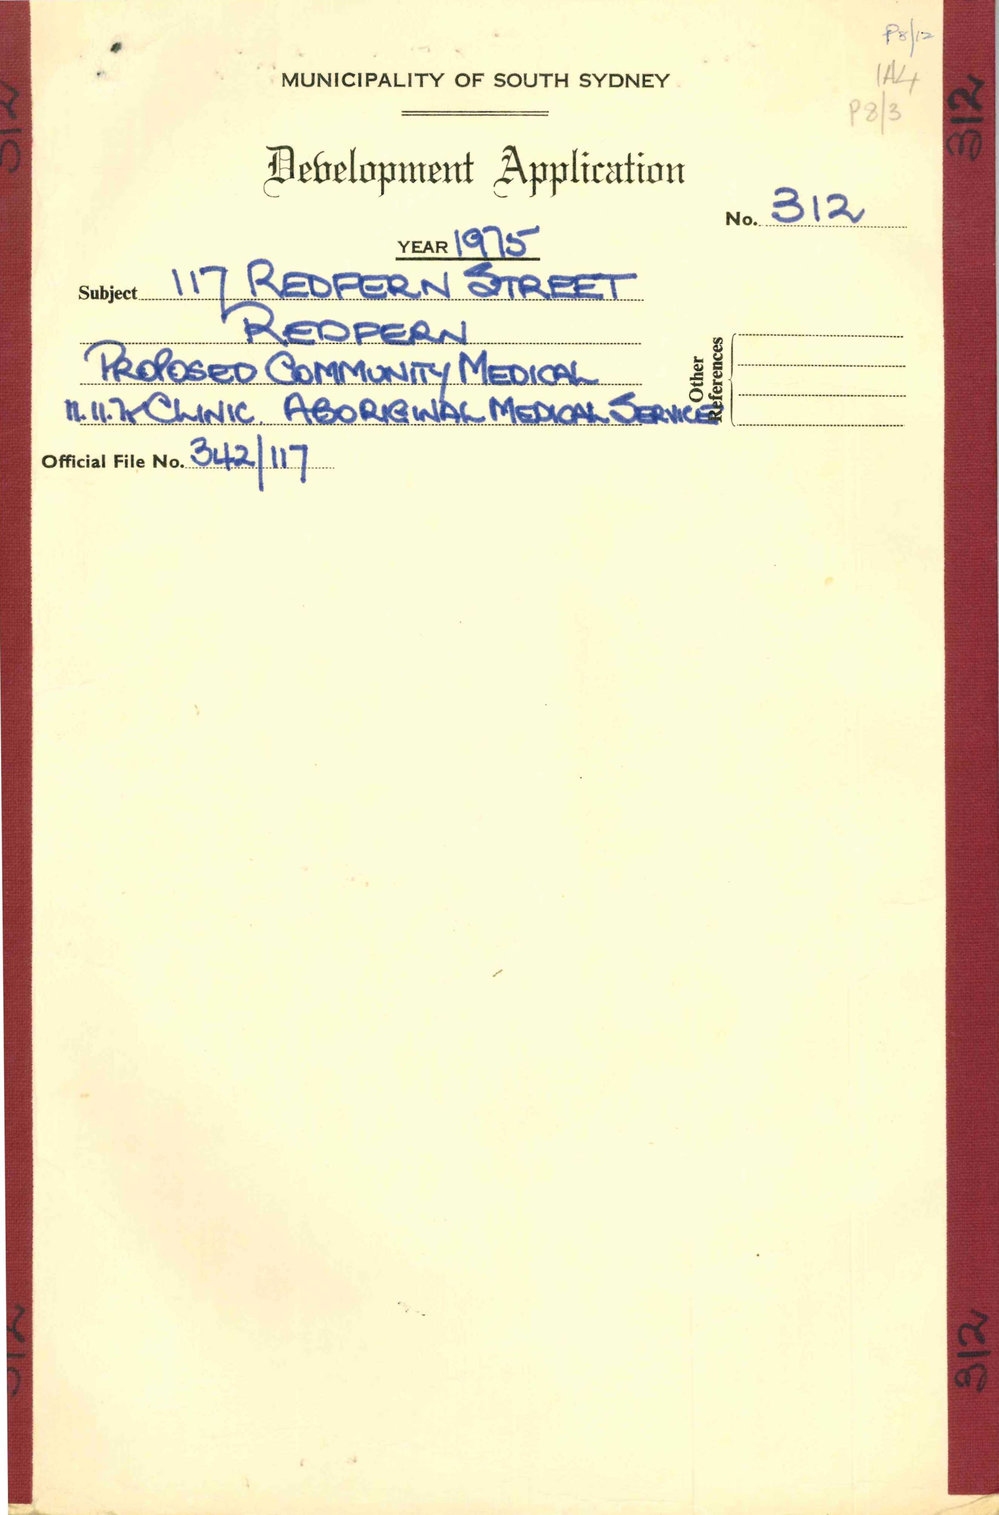 P8/12
1A4
P8/3
MUNICIPALITY OF SOUTH SYDNEY
Development Application
No. 312
YEAR 1975
Subject 117 REDFERN STREET
REDFERN
PROPOSED COMMUNITY MEDICAL
CLINIC. ABORIGINAL MEDICAL SERVICE
Other References
Official File No. 342/117
312
312
312
312